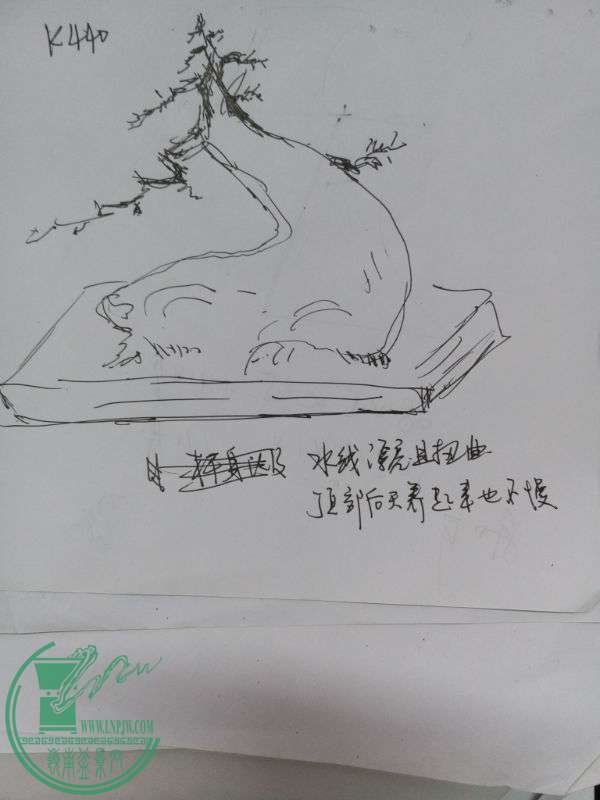 K440
水线漂亮且扭曲
顶部后天养起来也不慢
WWW.LNPJW.COM
岭南盆景网